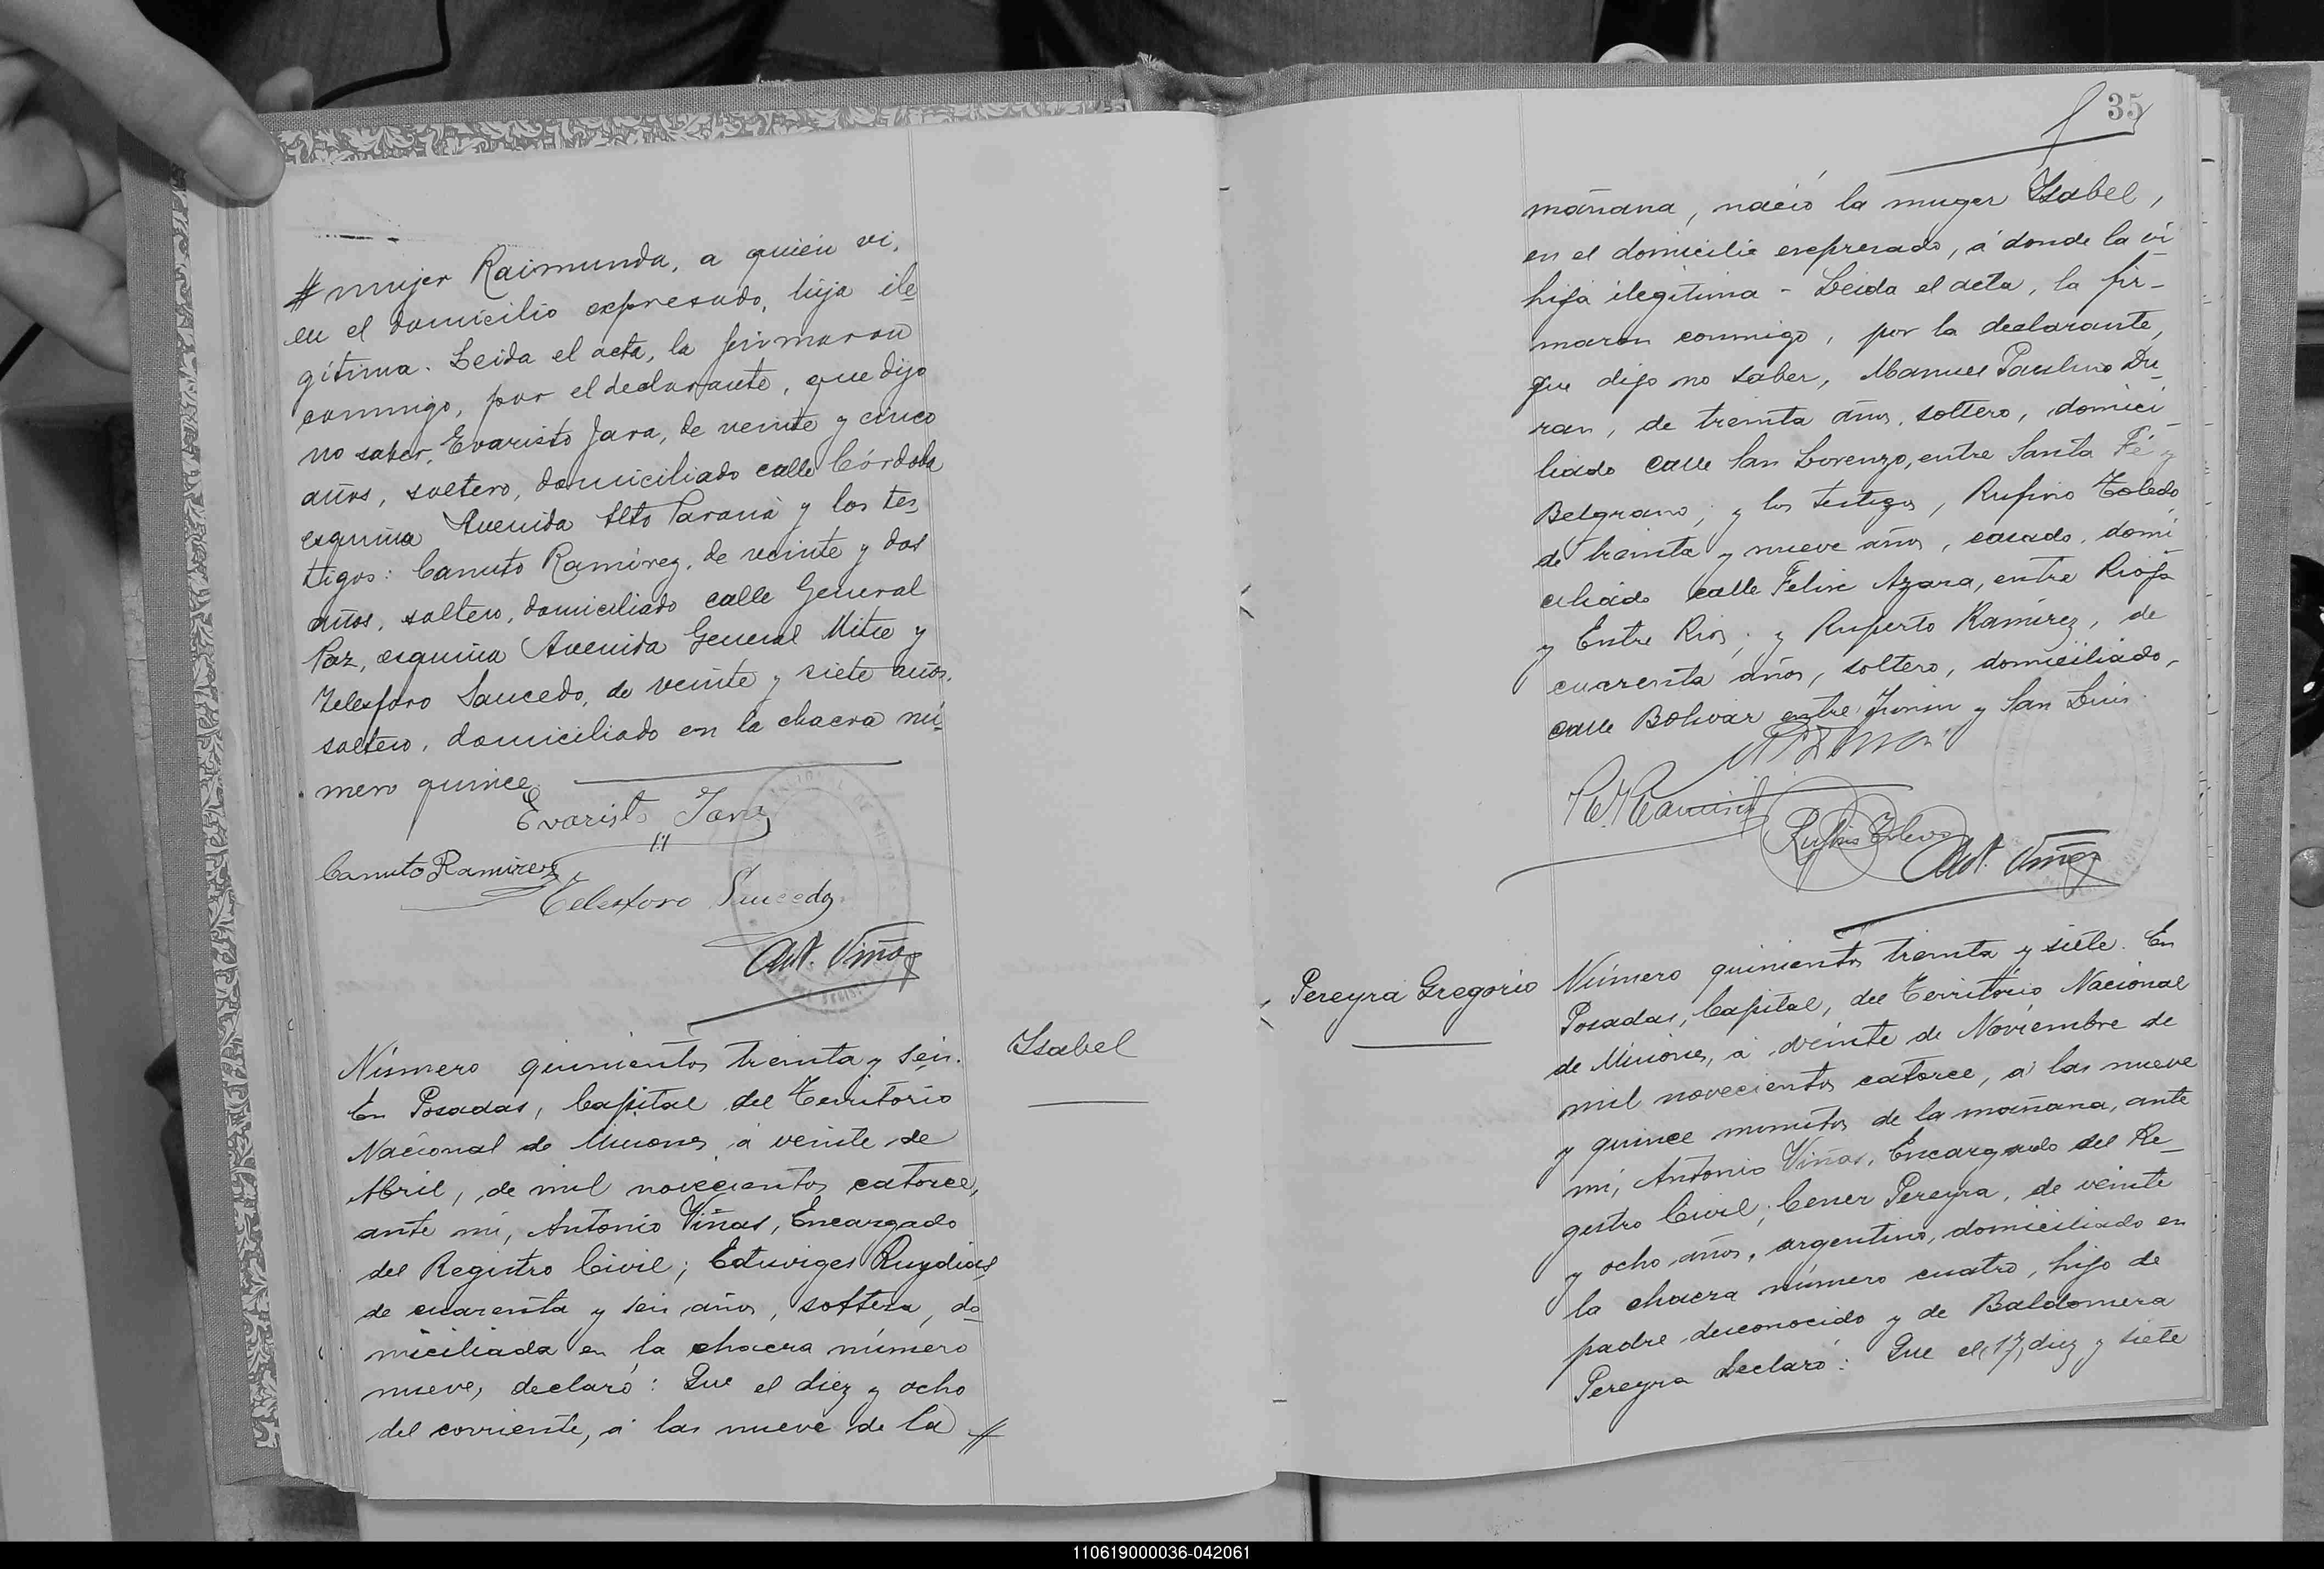 # mujer Raimunda, a quien vi,
en el domicilio expresado, hija ile
gítima. Leida el acta, la firmaron
conmigo, por el declarante, que dijo
no saber, Evaristo Jara, de veinte y cinco
años, soltero, domiciliado calle Córdoba
esquina Avenida Alto Paraná y los tes
tigos: Canuto Ramirez, de veinte y dos
años, soltero, domiciliado calle General
Paz, esquina Avenida General Mitre y
Telesforo Saucedo, de veinte y siete años,
soltero, domiciliado en la chacra nú
mero quince
Evaristo Jara
Canuto Ramirez
Telesforo Saucedo
Ant. Viñas
Número quinientos treinta y seis.
En Posadas, Capital del Territorio
Nacional de Misiones, á veinte de
Abril, de mil novecientos catorce,
ante mi, Antonio Viñas, Encargado
del Registro Civil; Eduviges Ruydias
de cuarenta y seis años, soltera, do
miciliada en la chacra número
nueve, declaró: Que el diez y ocho
del corriente, á las nueve de la #
Isabel
35
mañana, nació la muger Isabel,
en el domicilio expresado, á donde la vi
hija ilegitima - Leida el acta, la fir-
maron conmigo, por la declarante,
que dijo no saber, Manuel Paulino Du
ran, de treinta años, soltero, domici
liado calle San Lorenzo, entre Santa Fé y
Belgrano; y los testigos, Rufino Toledo
de treinta y nueve años, casado, domi
ciliado calle Felix Azara, entre Rioja
y Entre Rios; y Ruperto Ramirez, de
cuarenta años, soltero, domiciliado,
calle Bolivar entre Junin y San Luis
R. Ramirez
Rufino Toledo
Ant. Viñas
Pereyra Gregorio
Número quinientos treinta y siete. En
Posadas, Capital, del Territorio Nacional
de Misiones, á veinte de Noviembre de
mil novecientos catorce, á las nueve
y quince minutos de la mañana, ante
mi, Antonio Viñas, Encargado del Re-
gistro Civil; Cener Pereyra, de veinte
y ocho años, argentino, domiciliado en
la chacra número cuatro, hijo de
padre desconocido y de Baldomera
Pereyra declaró: Que el 17, diez y siete
110619000036-042061